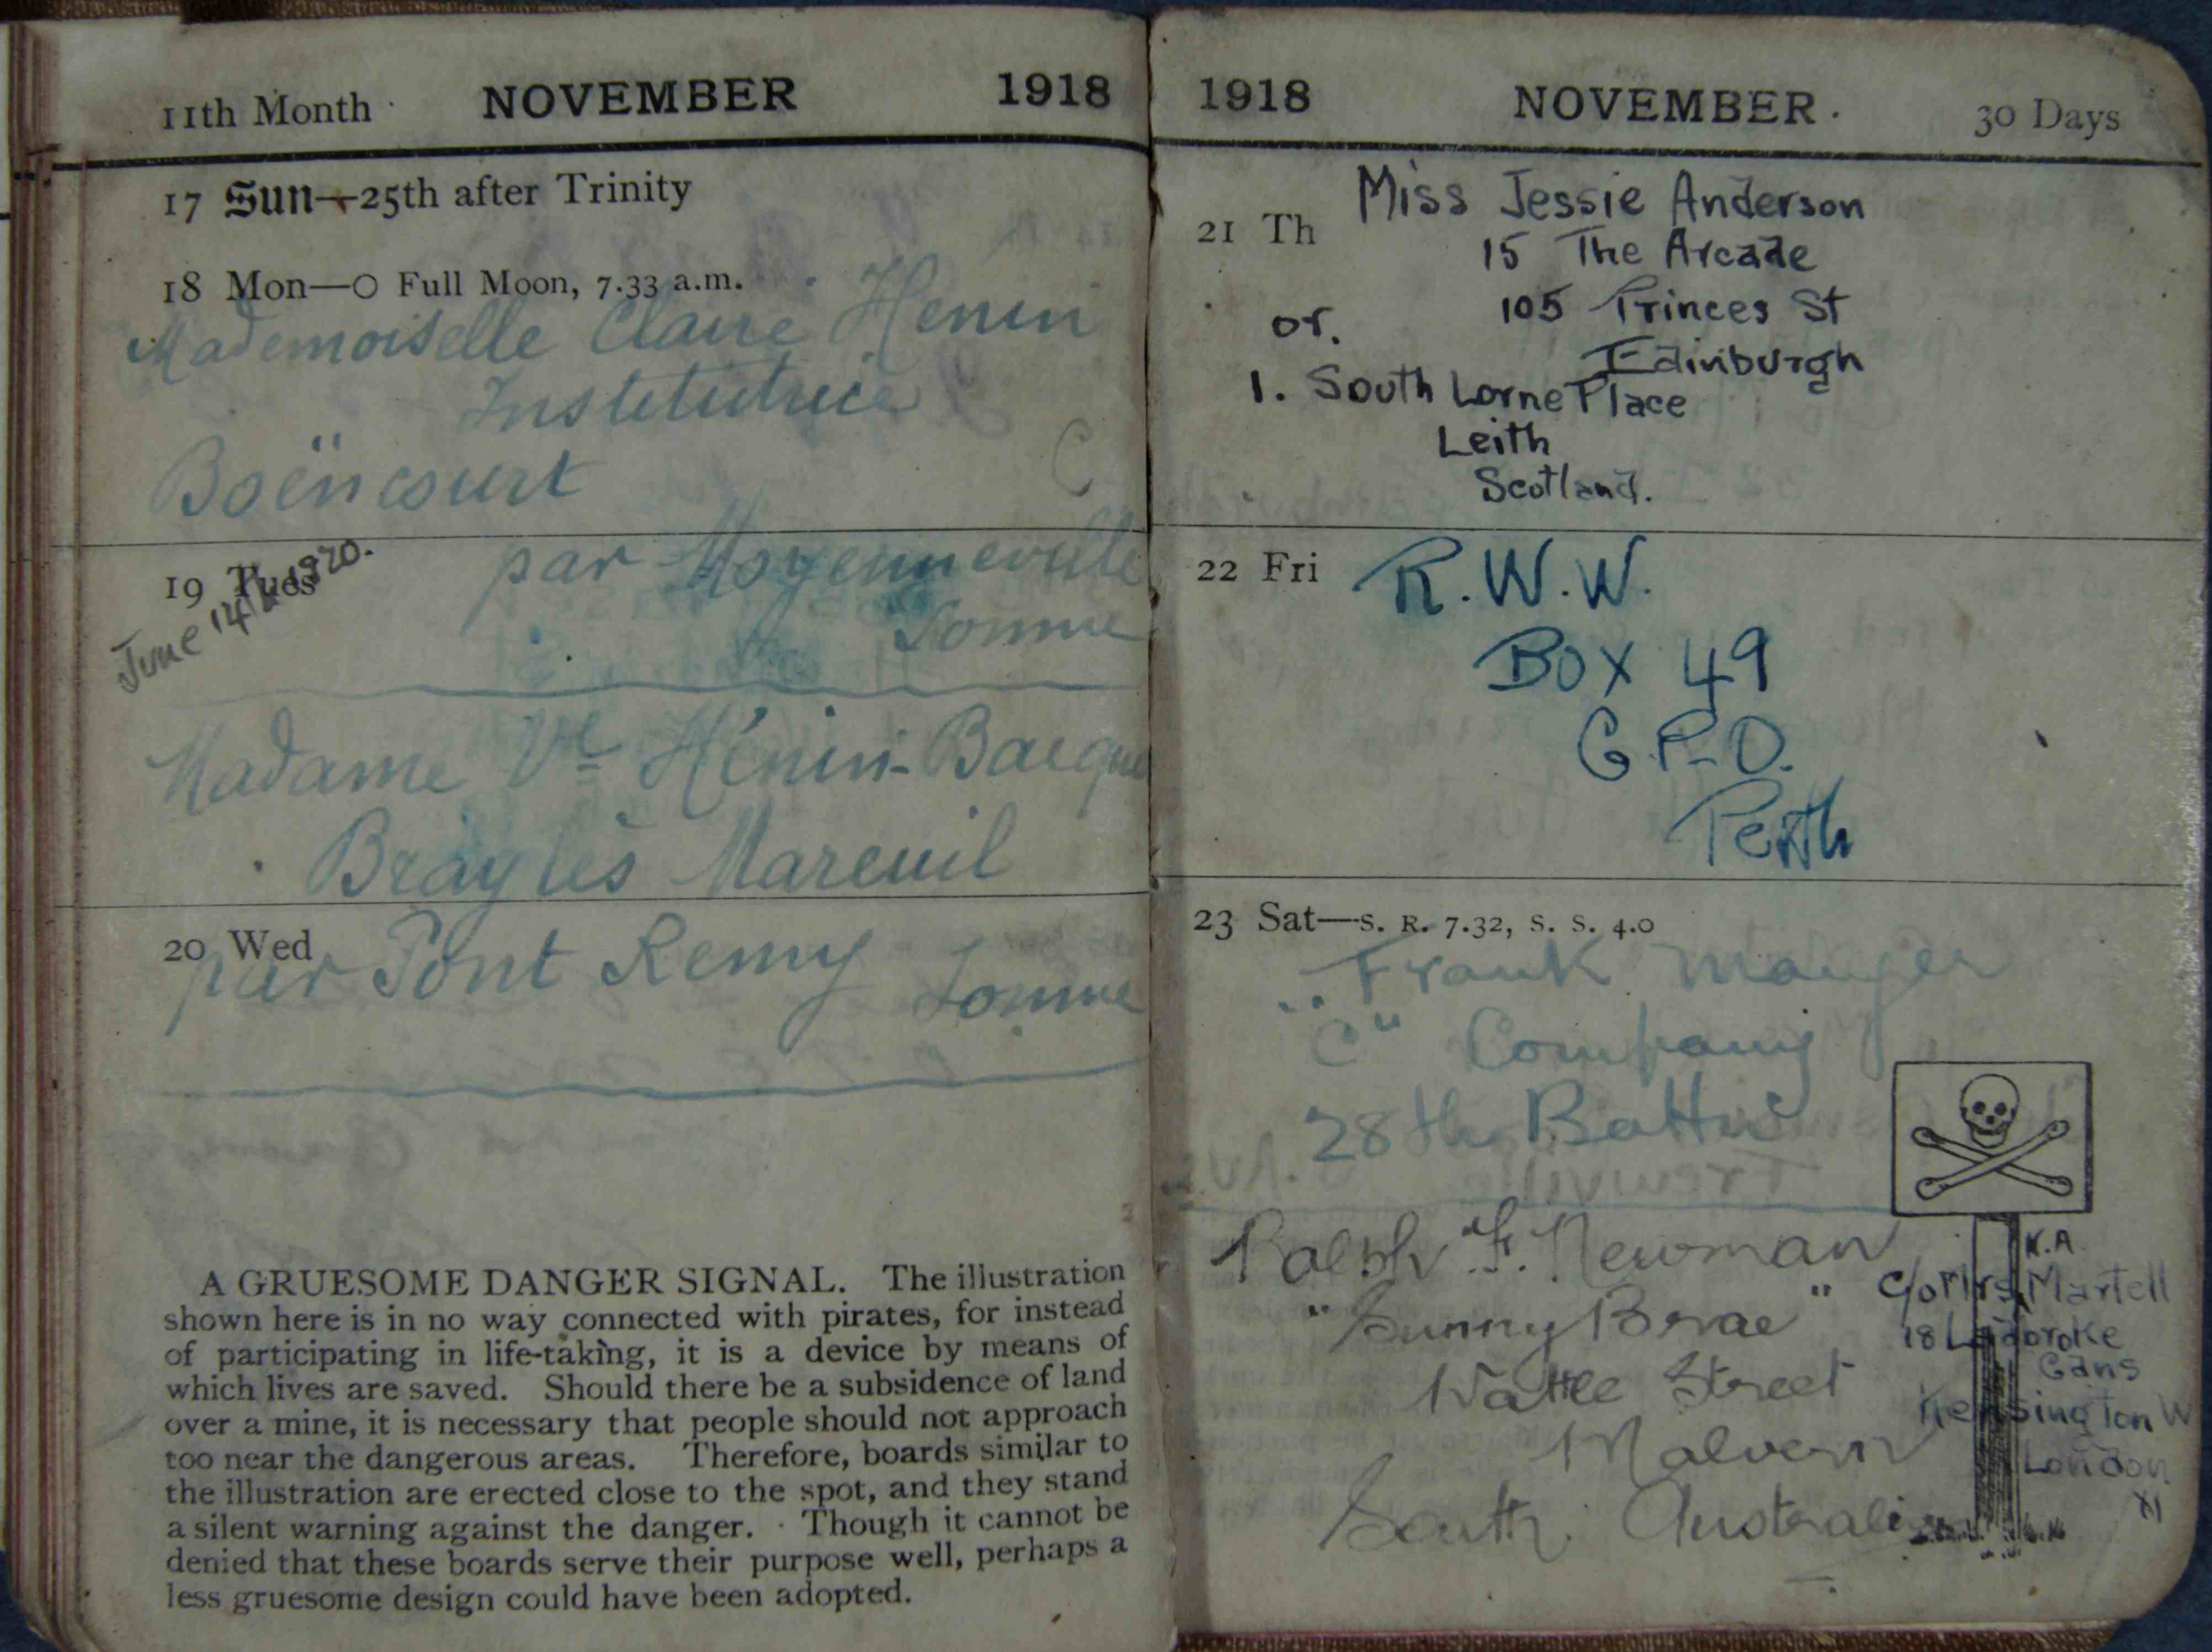 11th Month NOVEMBER 1918
17 Sun—25th after Trinity
18 Mon—O Full Moon, 7.33 a.m.
Mademoiselle Claire Henin
Institutrice
Boëncourt
19 Tues
par Moyenneville
Somme
June 14th 1920.
Madame Vve Hénin-Bacque
Bray les Mareuil
20 Wed
par Pont Remy Somme
A GRUESOME DANGER SIGNAL. The illustration
shown here is in no way connected with pirates, for instead
of participating in life-taking, it is a device by means of
which lives are saved. Should there be a subsidence of land
over a mine, it is necessary that people should not approach
too near the dangerous areas. Therefore, boards similar to
the illustration are erected close to the spot, and they stand
a silent warning against the danger. Though it cannot be
denied that these boards serve their purpose well, perhaps a
less gruesome design could have been adopted.
1918 NOVEMBER. 30 Days
21 Th
Miss Jessie Anderson
15 The Arcade
105 Princes St
Edinburgh
or.
1. South Lorne Place
Leith
Scotland.
22 Fri
R.W.W.
Box 49
G.P.O.
Perth
23 Sat—S. R. 7.32, S. S. 4.0
Frank Mauger
"C" Company
28th Battn
Ralph F. Newman
"Sunny Brae"
Wattle Street
Malvern
South Australia
K.A.
c/o Mrs Martell
18 Ladbroke
Gdns
Kensington W
London
XI